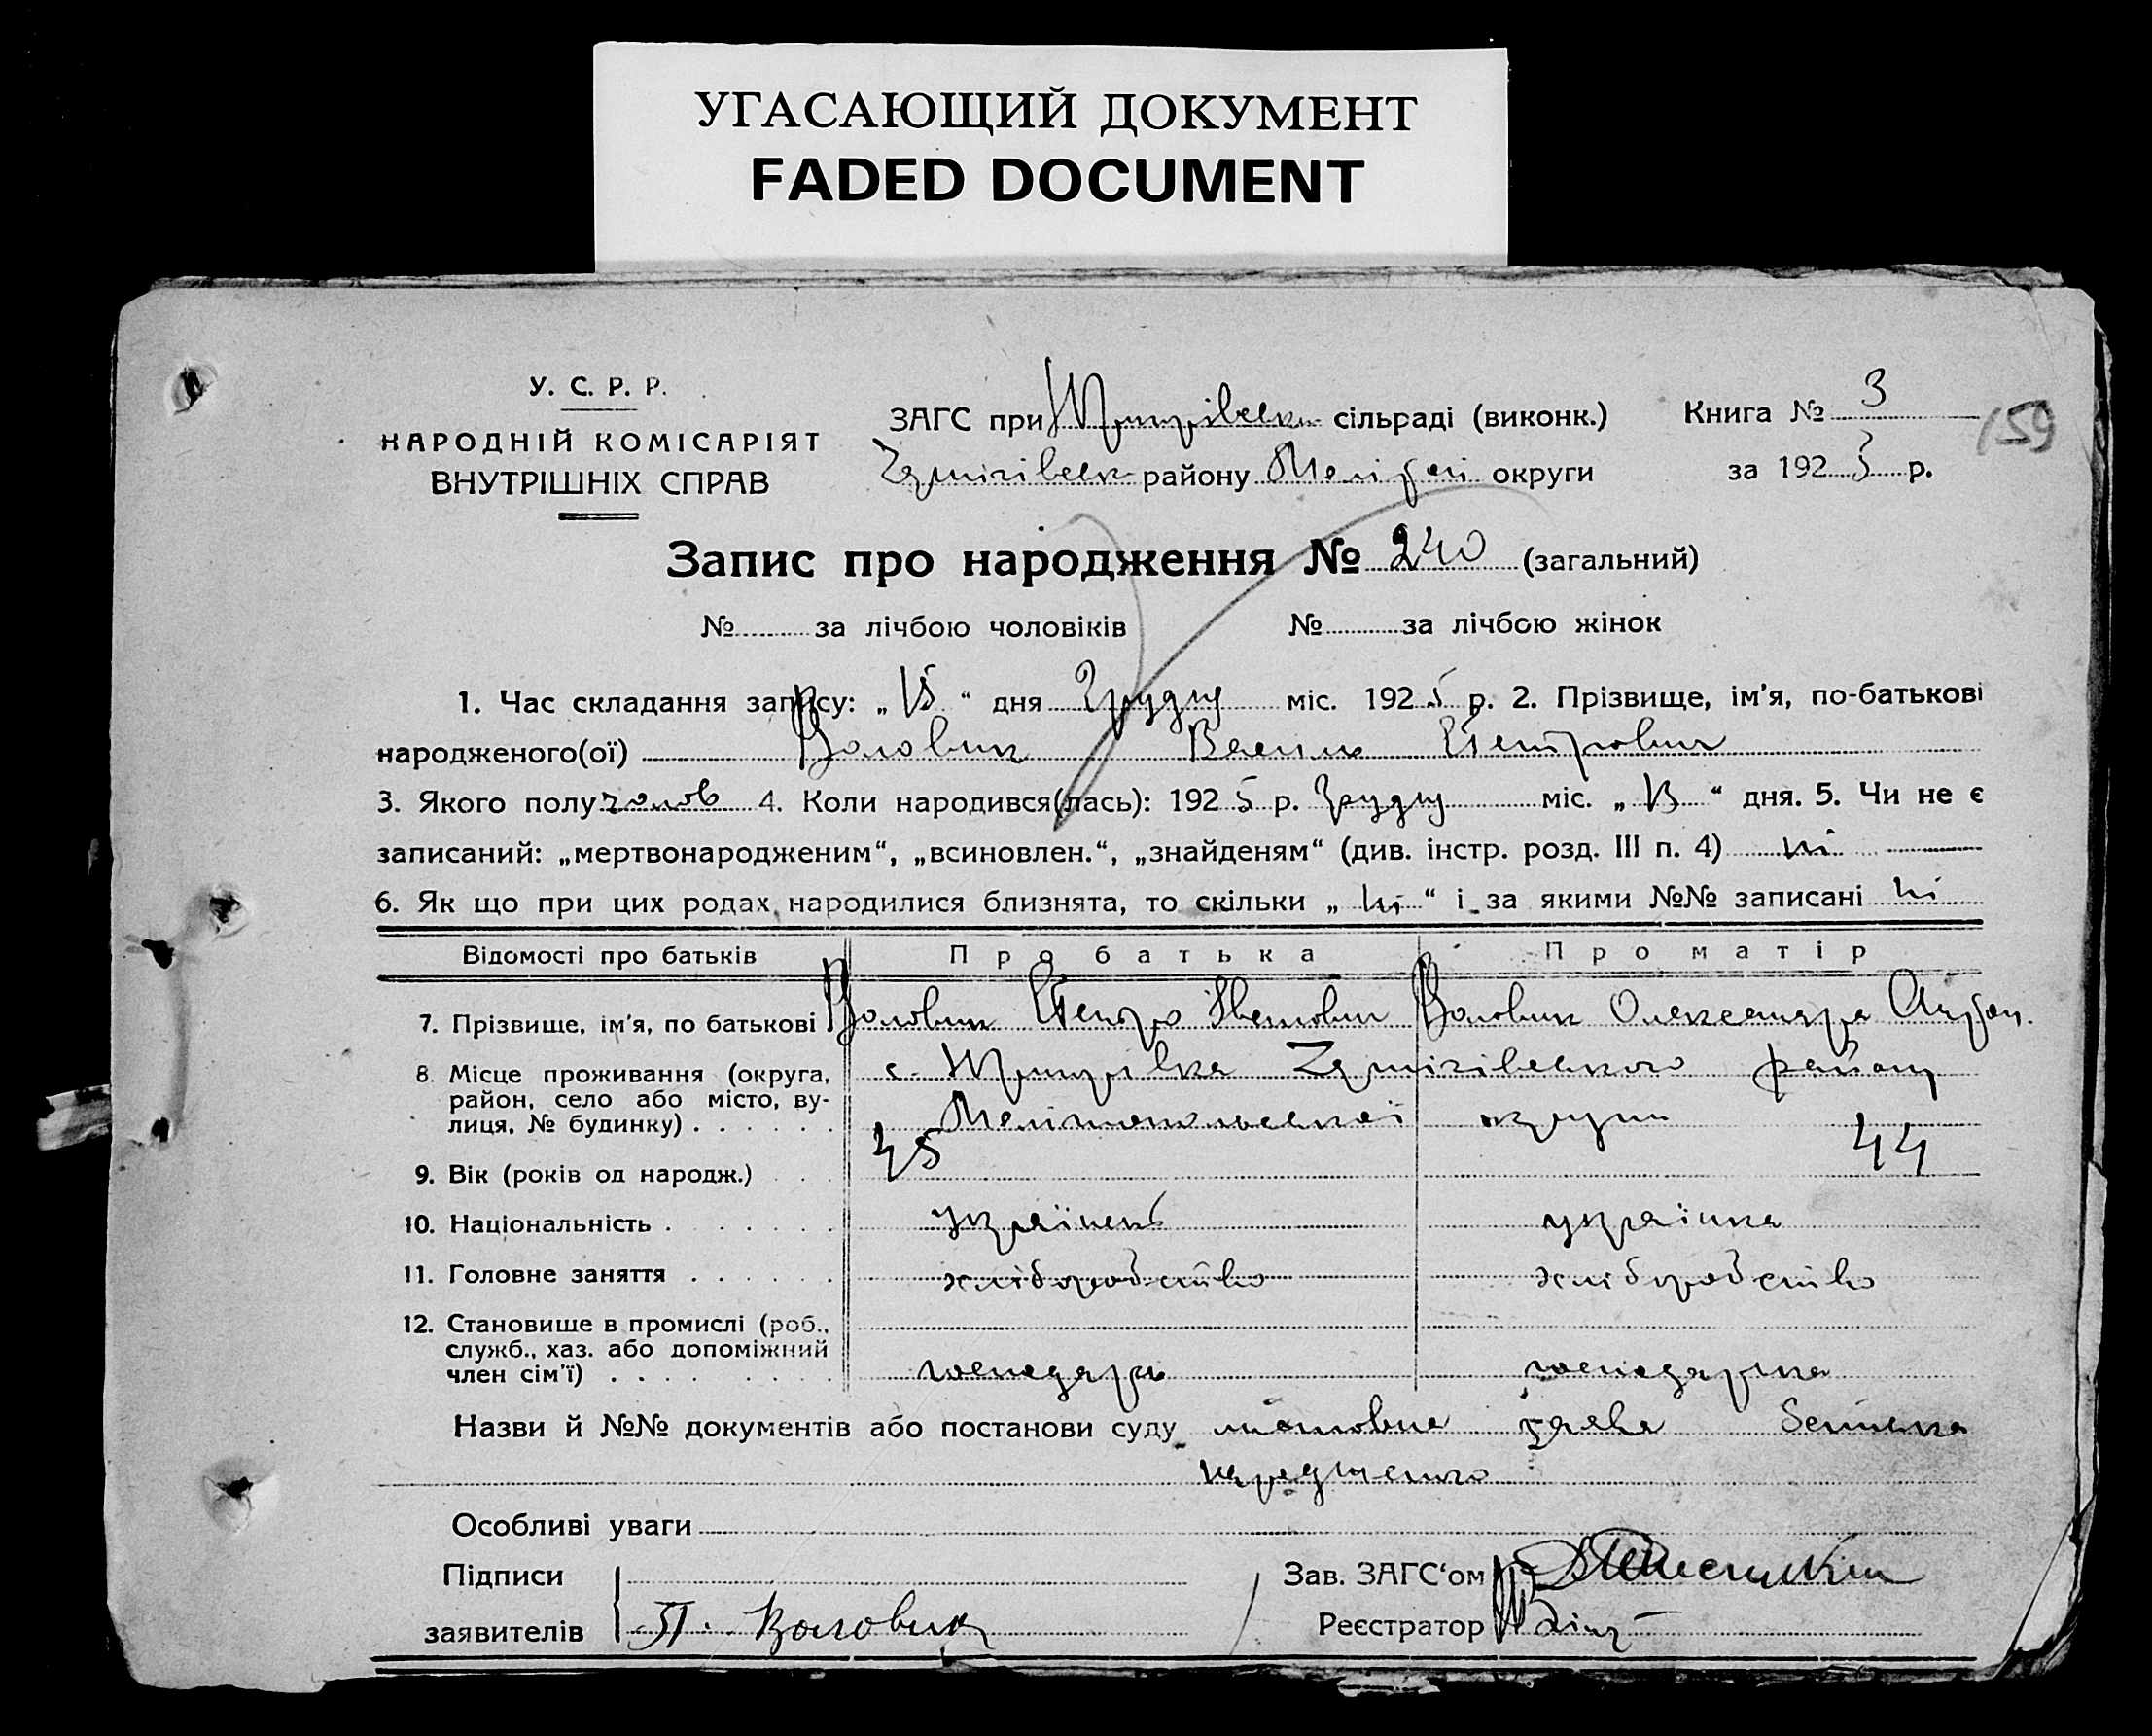 УГАСАЮЩИЙ ДОКУМЕНТ
FADED DOCUMENT
У. С. Р. Р.
НАРОДНІЙ КОМІСАРІЯТ
ВНУТРІШНІХ СПРАВ
ЗАГС при сільраді (виконк.)
району Меліт окрyги
Книга № 3
за 1925 р.
159
Запис про народження № 240 (загальний)
№ за лічбою чоловіків № за лічбою жінок
1. Час складання запису: „15“ дня Грудня міс. 1925 р. 2. Прізвище, ім'я, по-батькові
народженого(ої) Воловик Василь Петрович
3. Якого полу чолов 4. Коли народився(лась): 1925 р. Грудня міс. „13“ дня. 5. Чи не є
записаний: „мертвонародженим“, „всиновлен.“, „знайденям“ (див. інстр. розд. III п. 4) ні
6. Як що при цих родах народилися близнята, то скільки „ні“ і за якими №№ записані ні
Відомості про батьків Про батька Про матір
7. Прізвище, ім'я, по батькові Воловик Петро Іванович Воловик Олександра
8. Місце проживання (округа,
район, село або місто, ву-
лиця, № будинку) с. району
Мелітопольської округи
9. Вік (років од народж.) 45 44
10. Національність українець українка
11. Головне заняття хліборобство хліборобство
12. Становище в промислі (роб.,
служб., хаз. або допоміжний
член сім'ї) господарь господарка
Назви й №№ документів або постанови суду заява батька
народженого
Особливі уваги
Підписи
заявителів П. Воловик
Зав. ЗАГС'ом
Реєстратор